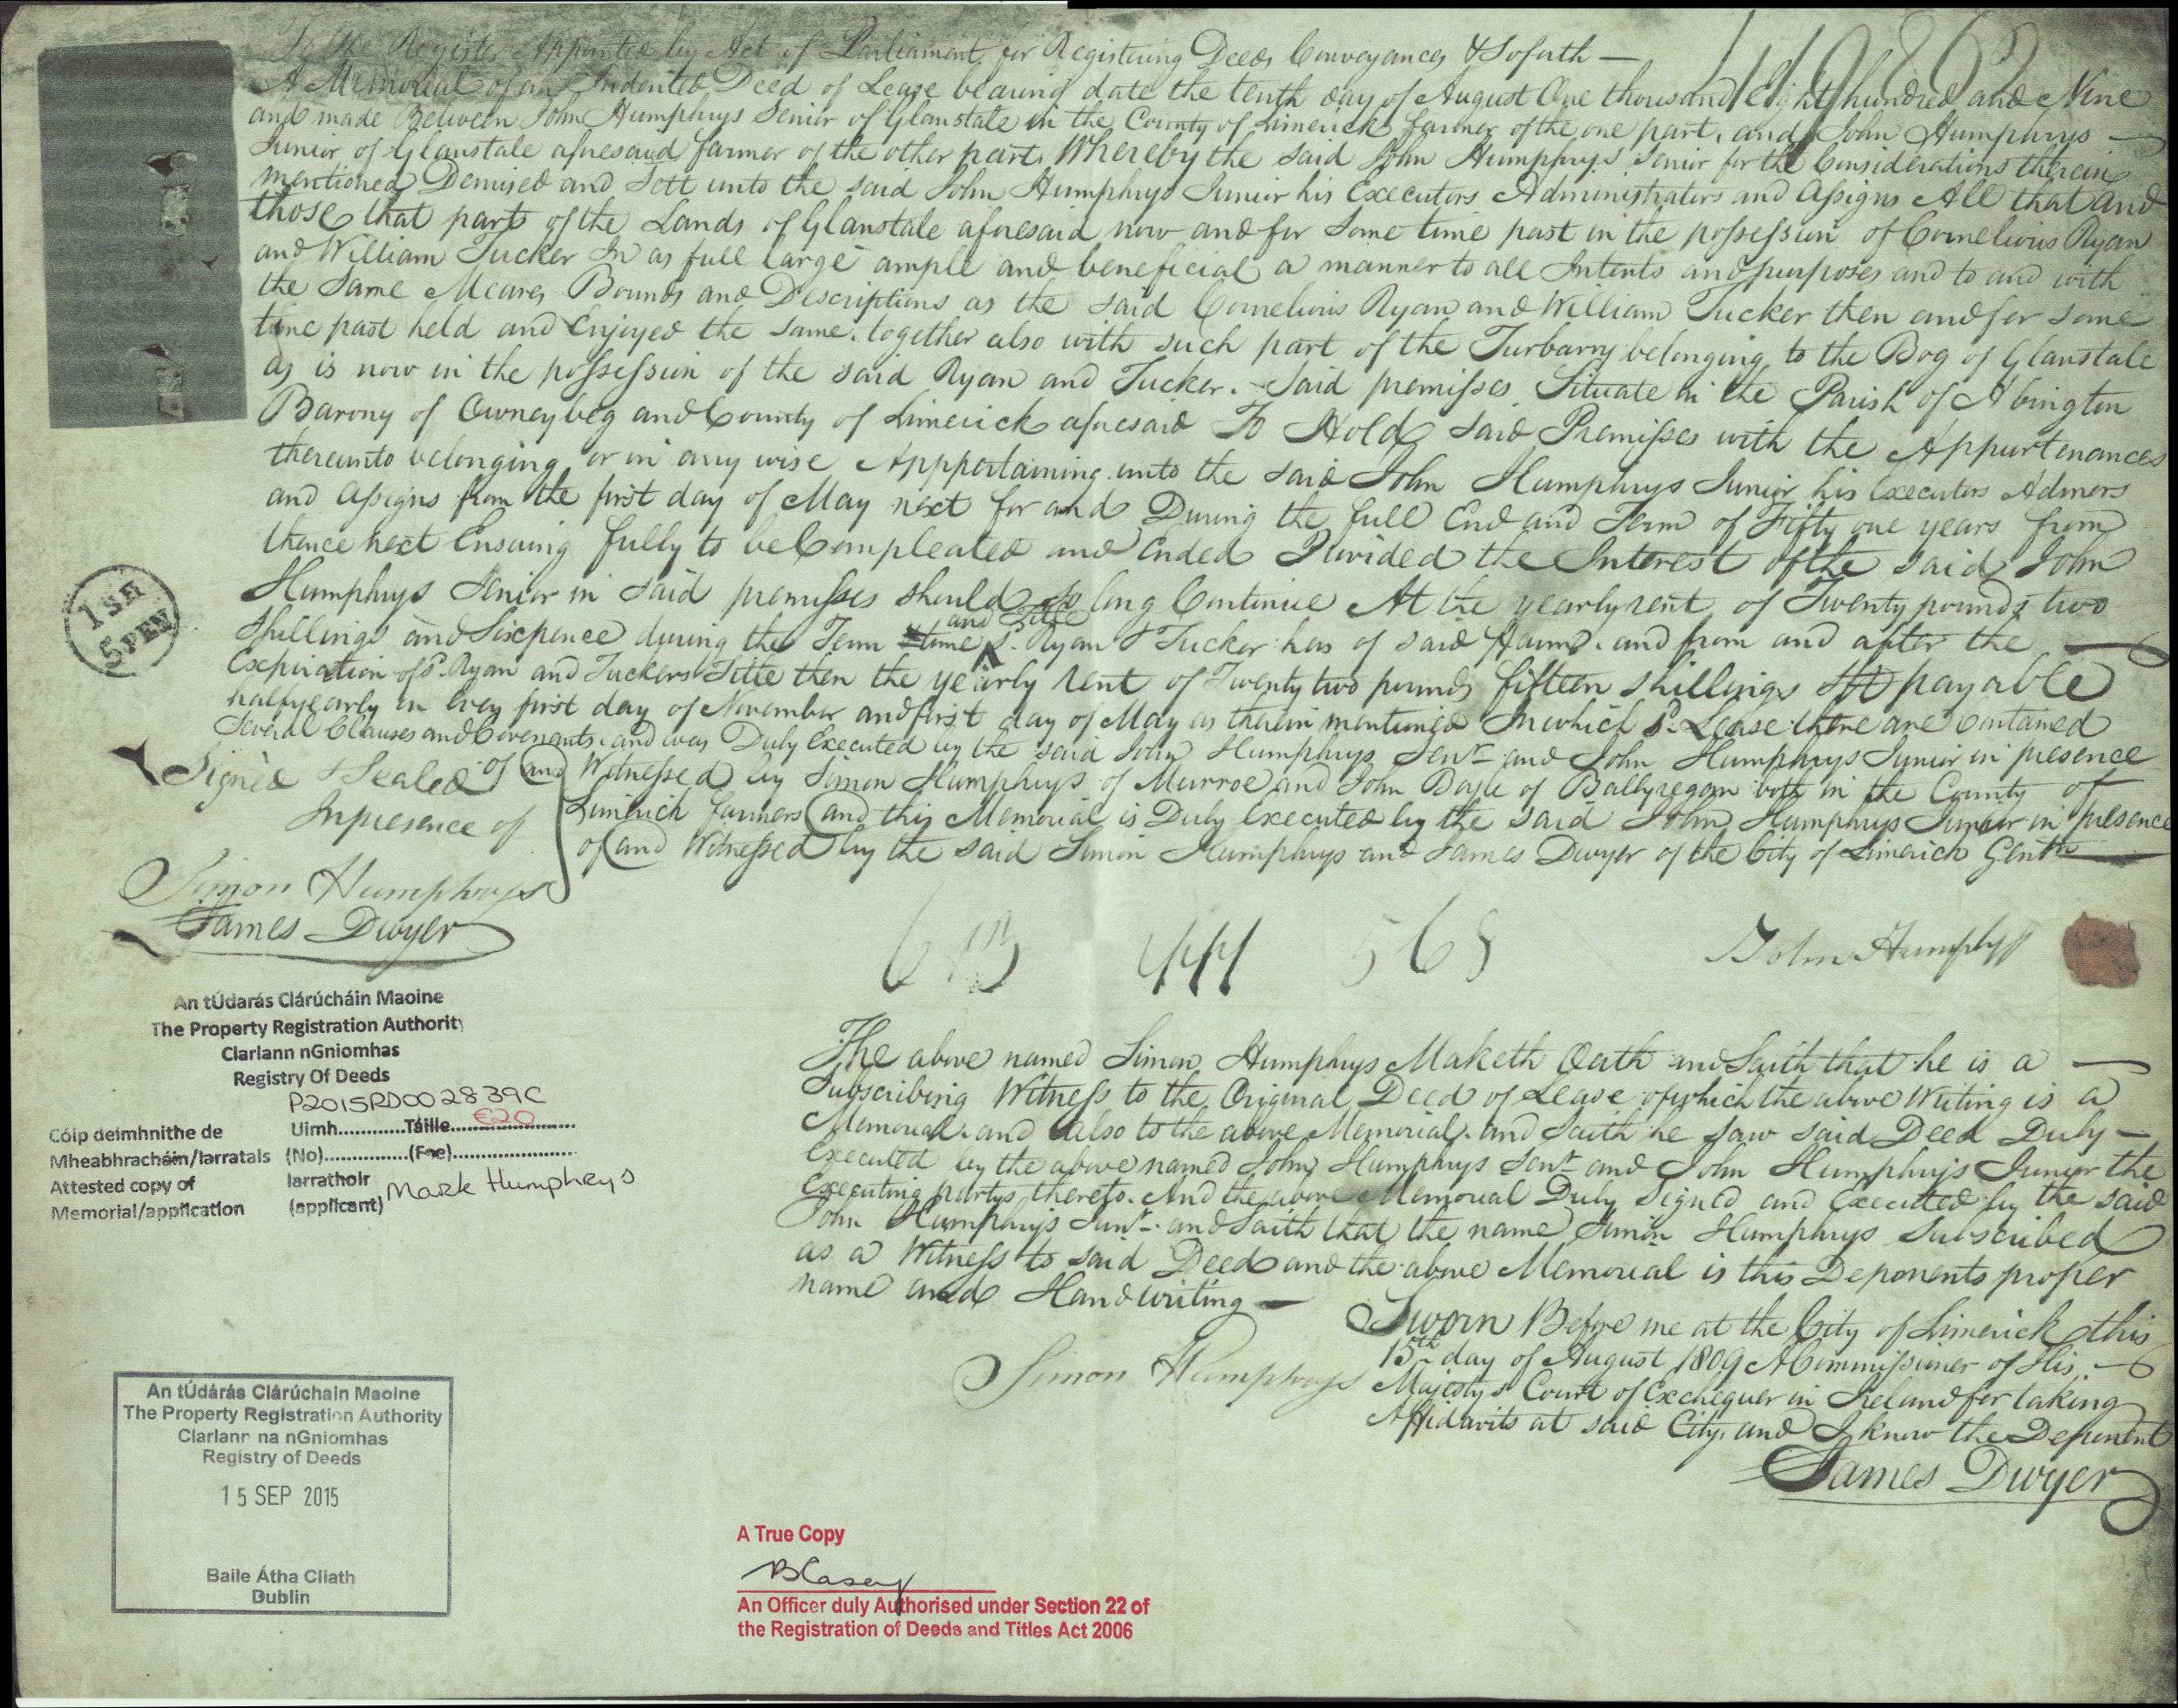 To the Register Appointed by Act of Parliament for Registering Deeds Conveyances & Soforth —
A Memorial of an Indented Deed of Lease bearing date the tenth day of August One thousand Eight hundred and Nine
and made Between John Humphrys Senior of Glanstale in the County of Limerick farmer of the one part, and John Humphrys —
Junior of Glanstale aforesaid farmer of the other part, Whereby the said John Humphrys Senior for the Considerations therein
mentioned Demised and Sett unto the said John Humphrys Junior his Executors Administrators and Assigns All that and
those that part of the Lands of Glanstale aforesaid now and for some time past in the possession of Cornelious Ryan
and William Tucker In as full large ample and beneficial a manner to all Intents and purposes and to and with
the Same Meares Bounds and Descriptions as the said Cornelious Ryan and William Tucker then and for some
time past held and Enjoyed the same. together also with such part of the Turbarry belonging to the Bog of Glanstale
as is now in the possession of the said Ryan and Tucker. Said premisses Situate in the Parish of Abington
Barony of Owneybeg and County of Limerick aforesaid To Hold said Premisses with the Appurtenances
thereunto belonging or in any wise Apppertaining unto the said John Humphrys Junior his Executors Admors
and Assigns from the first day of May next for and During the full End and Term of Fifty one years from
thence next Ensuing fully to be Compleated and Ended Provided the Interest of the said John
Humphrys Senior in said premisses should so long Continue At the yearly rent of Twenty pounds two
and Title
Shillings and Sixpence during the Term time sd. Ryan & Tucker has of said Farm. and from and after the
Expiration of sd. Ryan and Tuckers Title then the yearly rent of Twenty two pounds fifteen shillings Str payable
halfyearly on Every first day of November and first day of May as therein mentioned In which sd. Lease there are contained
Several Clauses and Covenants. and was Duly Executed by the said John Humphrys Senr. and John Humphrys Junior in presence
of and Witnessed by Simon Humphrys of Murroe and John Doyle of Ballyregan both in the County of
Limerick farmers and this Memorial is Duly Executed by the said John Humphrys Junior in presence
of and Witnessed by the said Simon Humphrys and James Dwyer of the City of Limerick Gentn
Signed & Sealed
In presence of
Simon Humphrys
James Dwyer
1 SH
5 PEN
613 444 568
John Humphrys
The above named Simon Humphrys Maketh Oath and Saith that he is a —
Subscribing Witness to the Original Deed of Lease of which the above Writing is a
Memorial. and also to the above Memorial. and Saith he saw said Deed Duly —
Executed by the above named John Humphrys Senr. and John Humphrys Junior the
Executing partys thereto. And the above Memorial Duly Signed and Executed by the said
John Humphrys Junr. and Saith that the name Simon Humphrys Subscribed
as a Witness to said Deed and the above Memorial is this Deponents proper
name and Handwriting —
Simon Humphrys
Sworn Before me at the City of Limerick this
15th day of August 1809 A Commissioner of His —
Majestys Court of Exchequer in Ireland for taking
Affidavits at said City. and I know the Deponent
James Dwyer
An tÚdarás Clárúcháin Maoine
The Property Registration Authority
Clarlann nGniomhas
Registry Of Deeds
P2015RD002839C
Cóip deimhnithe de Uimh.............Táille...€20...
Mheabhracháin/Iarratals (No)................(Fee)......................
Attested copy of Iarrathoir
Memorial/application (applicant) Mark Humphrys
An tÚdárás Clárúchain Maoine
The Property Registration Authority
Clarlann na nGniomhas
Registry of Deeds
15 SEP 2015
Baile Átha Cliath
Dublin
A True Copy
B Casey
An Officer duly Authorised under Section 22 of
the Registration of Deeds and Titles Act 2006